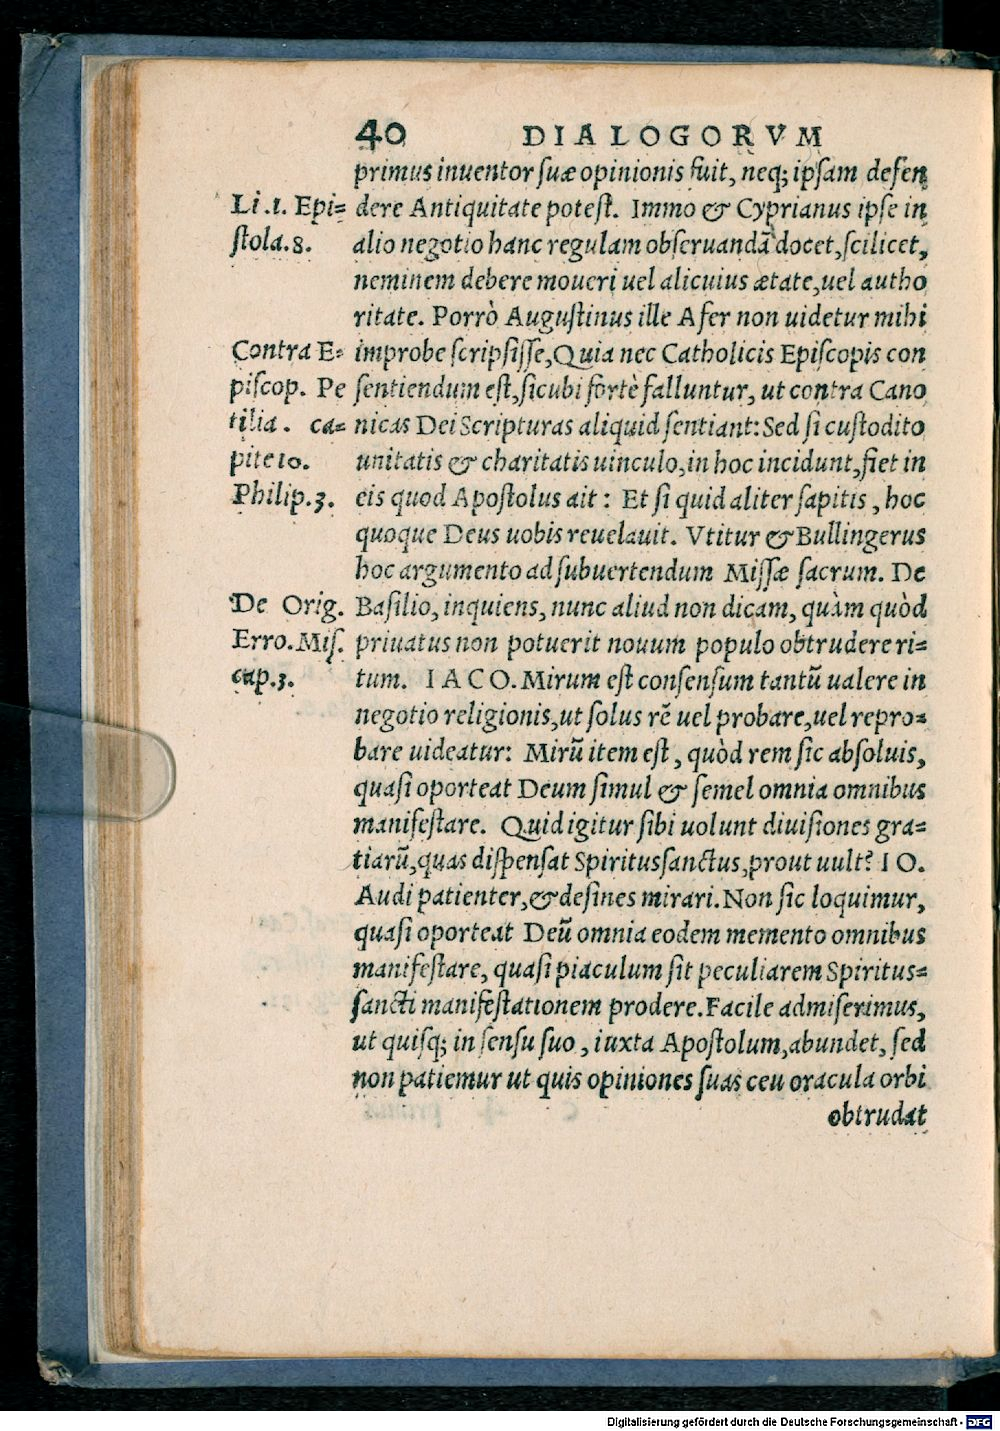 40 DIALOGORVM
primus inuentor suæ opinionis fuit, neq; ipsam defen
Li.1. Epi= dere Antiquitate potest. Immo & Cyprianus ipse in
stola.8. alio negotio hanc regulam obseruandā docet, scilicet,
neminem debere moueri uel alicuius ætate, uel autho
ritate. Porrò Augustinus ille Afer non uidetur mihi
Contra E= improbe scripsisse, Quia nec Catholicis Episcopis con
piscop. Pe sentiendum est, sicubi fortè falluntur, ut contra Cano
tilia. ca= nicas Dei Scripturas aliquid sentiant: Sed si custodito
pite 10. unitatis & charitatis uinculo, in hoc incidunt, fiet in
Philip.3. eis quod Apostolus ait: Et si quid aliter sapitis, hoc
quoque Deus uobis reuelauit. Vtitur & Bullingerus
hoc argumento ad subuertendum Missæ sacrum. De
De Orig. Basilio, inquiens, nunc aliud non dicam, quàm quòd
Erro. Mis. priuatus non potuerit nouum populo obtrudere ri=
cap.3. tum. IACO. Mirum est consensum tantū ualere in
negotio religionis, ut solus rē uel probare, uel repro=
bare uideatur: Mirū item est, quòd rem sic absoluis,
quasi oporteat Deum simul & semel omnia omnibus
manifestare. Quid igitur sibi uolunt diuisiones gra=
tiarū, quas dispensat Spiritussanctus, prout uult? IO.
Audi patienter, & desines mirari. Non sic loquimur,
quasi oporteat Deū omnia eodem memento omnibus
manifestare, quasi piaculum sit peculiarem Spiritus=
sancti manifestationem prodere. Facile admiserimus,
ut quisq; in sensu suo, iuxta Apostolum, abundet, sed
non patiemur ut quis opiniones suas ceu oracula orbi
obtrudat
Digitalisierung gefördert durch die Deutsche Forschungsgemeinschaft - DFG